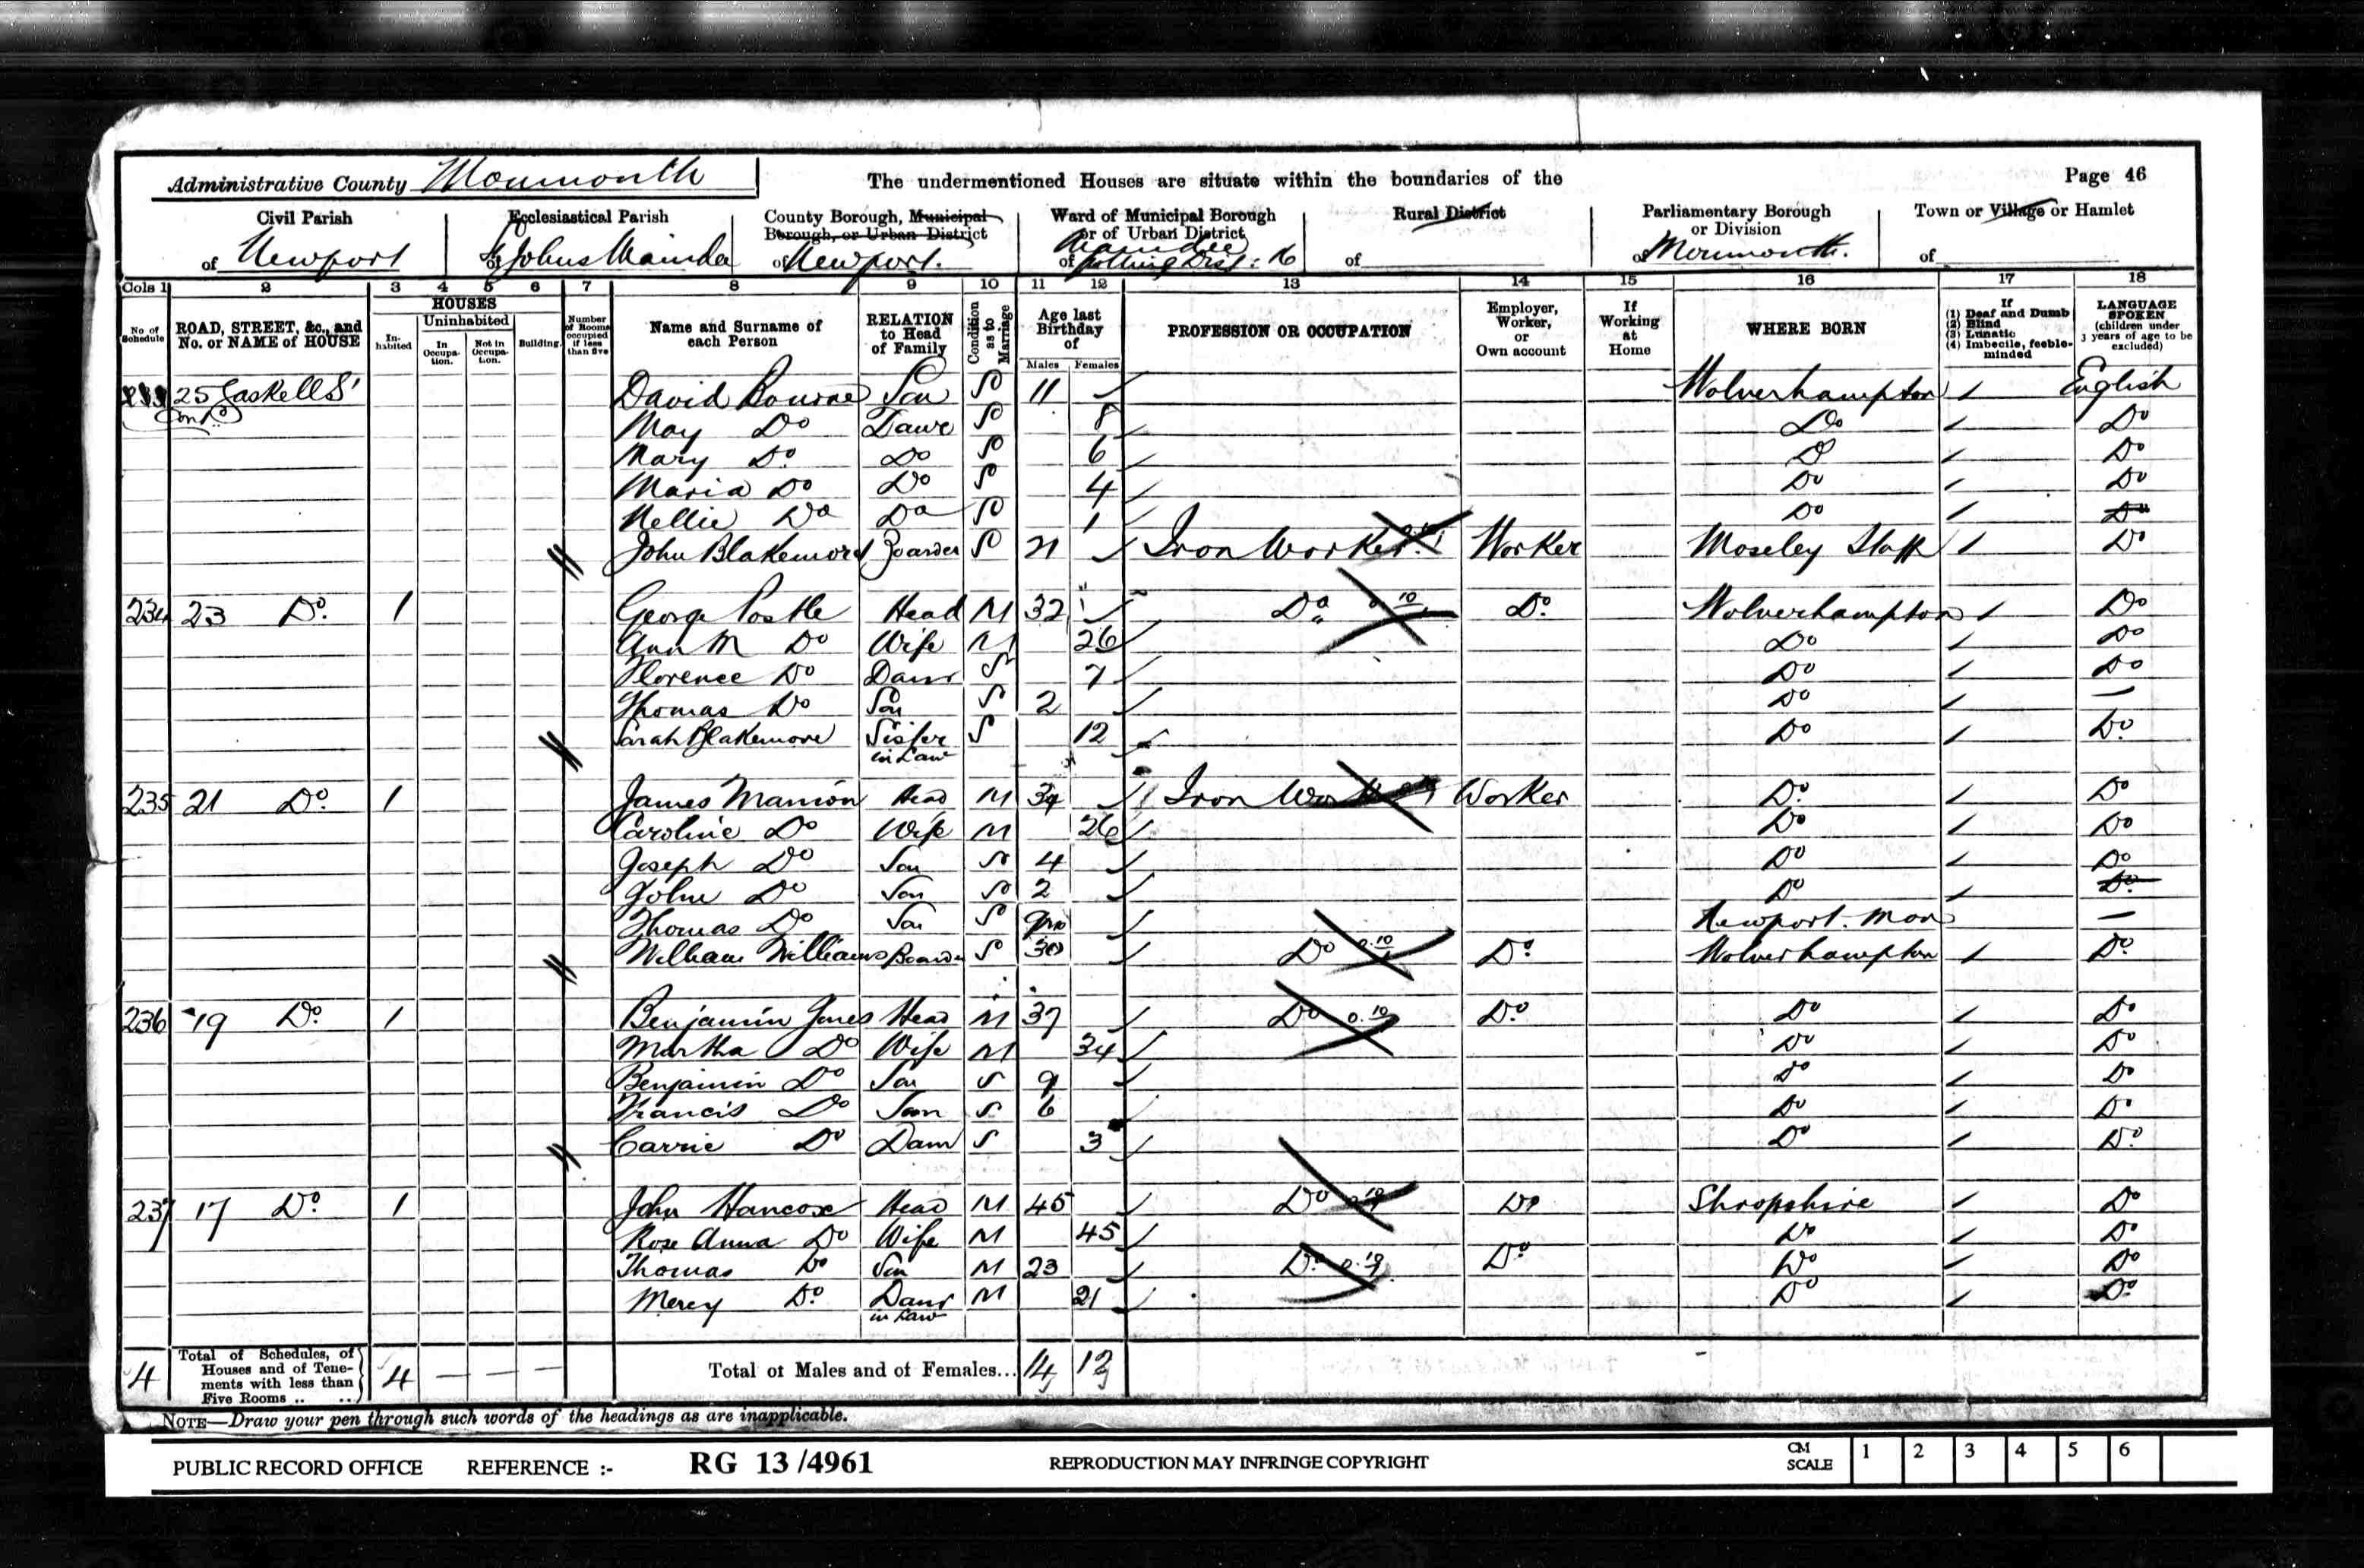 Administrative County Monmouth The undermentioned Houses are situate within the boundaries of the Page 46
Civil Parish of Newport
Ecclesiastical Parish of St Johns Maindee
County Borough, Municipal Borough, or Urban District of Newport.
Ward of Municipal Borough or of Urban District of Maindee Polling Dist: 16
Rural District of
Parliamentary Borough or Division of Monmouth.
Town or Village or Hamlet of
Cols 1 2 3 4 5 6 7 8 9 10 11 12 13 14 15 16 17 18
No of Schedule
ROAD, STREET, &c., and No. or NAME of HOUSE
HOUSES
Inhabited
Uninhabited
In Occupation.
Not in Occupation.
Building.
Number of Rooms occupied if less than five
Name and Surname of each Person
RELATION to Head of Family
Condition as to Marriage
Age last Birthday of
Males Females
PROFESSION OR OCCUPATION
Employer, Worker, or Own account
If Working at Home
WHERE BORN
If (1) Deaf and Dumb (2) Blind (3) Lunatic (4) Imbecile, feeble-minded
LANGUAGE SPOKEN (children under 3 years of age to be excluded)
233 25 Gaskell St David Bourne Son S 11 Wolverhampton English
Contd May Do Daur S 8 Do Do
Mary Do Do S 6 Do Do
Maria Do Do S 4 Do Do
Nellie Do Do S 1 Do Do
John Blakemore Boarder S 21 Iron Worker Worker Moseley Staff Do
234 23 Do 1 George Postle Head M 32 Do 0.10 Do Wolverhampton Do
Ann M Do Wife M 26 Do Do
Florence Do Daur S 7 Do Do
Thomas Do Son S 2 Do —
Sarah Blakemore Sister in Law S 12 Do Do
235 21 Do 1 James Manion Head M 34 Iron Worker Worker Do Do
Caroline Do Wife M 26 Do Do
Joseph Do Son S 4 Do Do
John Do Son S 2 Do Do
Thomas Do Son S Newport. Mon —
William Williams Boarder S 30 Do 0.10 Do Wolverhampton Do
236 19 Do 1 Benjamin Jones Head M 37 Do 0.10 Do Do Do
Martha Do Wife M 34 Do Do
Benjamin Do Son S 9 Do Do
Francis Do Son S 6 Do Do
Carrie Do Daur S 3 Do Do
237 17 Do 1 John Hancox Head M 45 Do Do Shropshire Do
Rose Anna Do Wife M 45 Do Do
Thomas Do Son M 23 Do Do Do Do
Mercy Do Daur in Law M 21 Do Do
4 Total of Schedules, of Houses and of Tenements with less than Five Rooms .. .. 4 — — — Total of Males and of Females... 14 12
NOTE—Draw your pen through such words of the headings as are inapplicable.
PUBLIC RECORD OFFICE REFERENCE :- RG 13 /4961 REPRODUCTION MAY INFRINGE COPYRIGHT CM SCALE 1 2 3 4 5 6